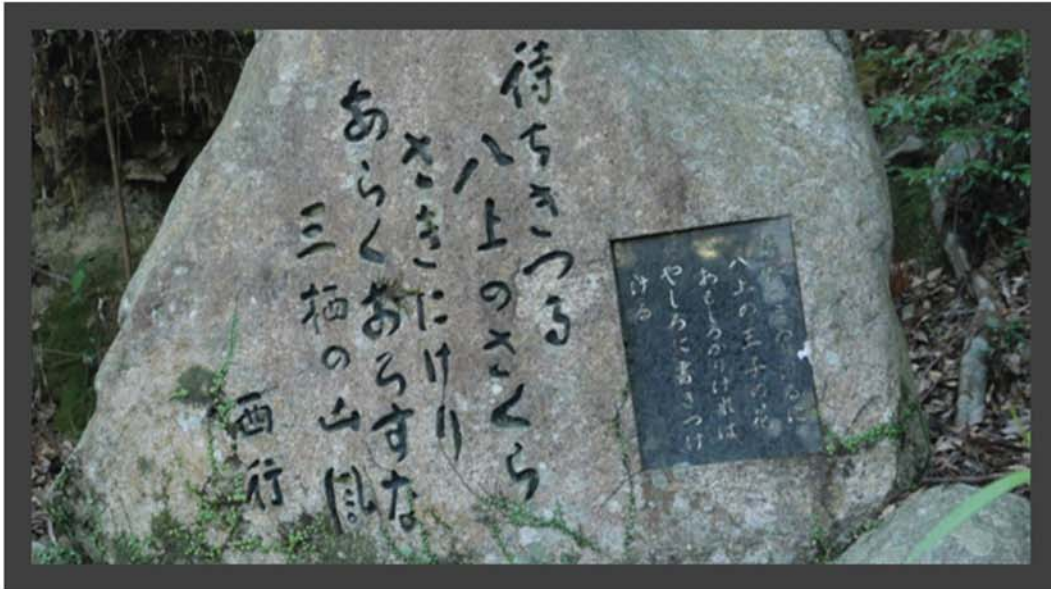 待ちきつる
八上のさくら
さきにけり
あらくおろすな
三栖の山風
西行
八上の王子の花
おもしろかりけれは
やしろに書きつけ
ける